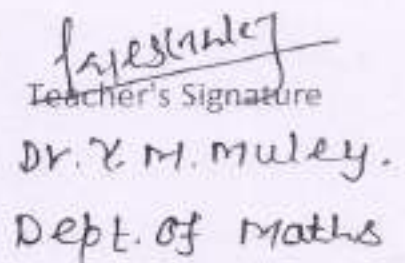 Teacher's Signature
Dr. Y. M. Muley.
Dept. of Maths